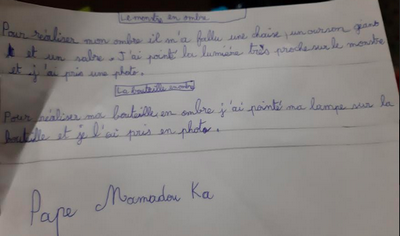 Le monstre en ombre
Pour réaliser mon ombre il m'a fallu une chaise, un ourson géant
et un sabre. J'ai pointé la lumière très proche sur le monstre
et j'ai pris une photo.
La bouteille en ombre
Pour réaliser ma bouteille en ombre j'ai pointé ma lampe sur la
bouteille et je l'ai pris en photo.
Pape Mamadou Ka